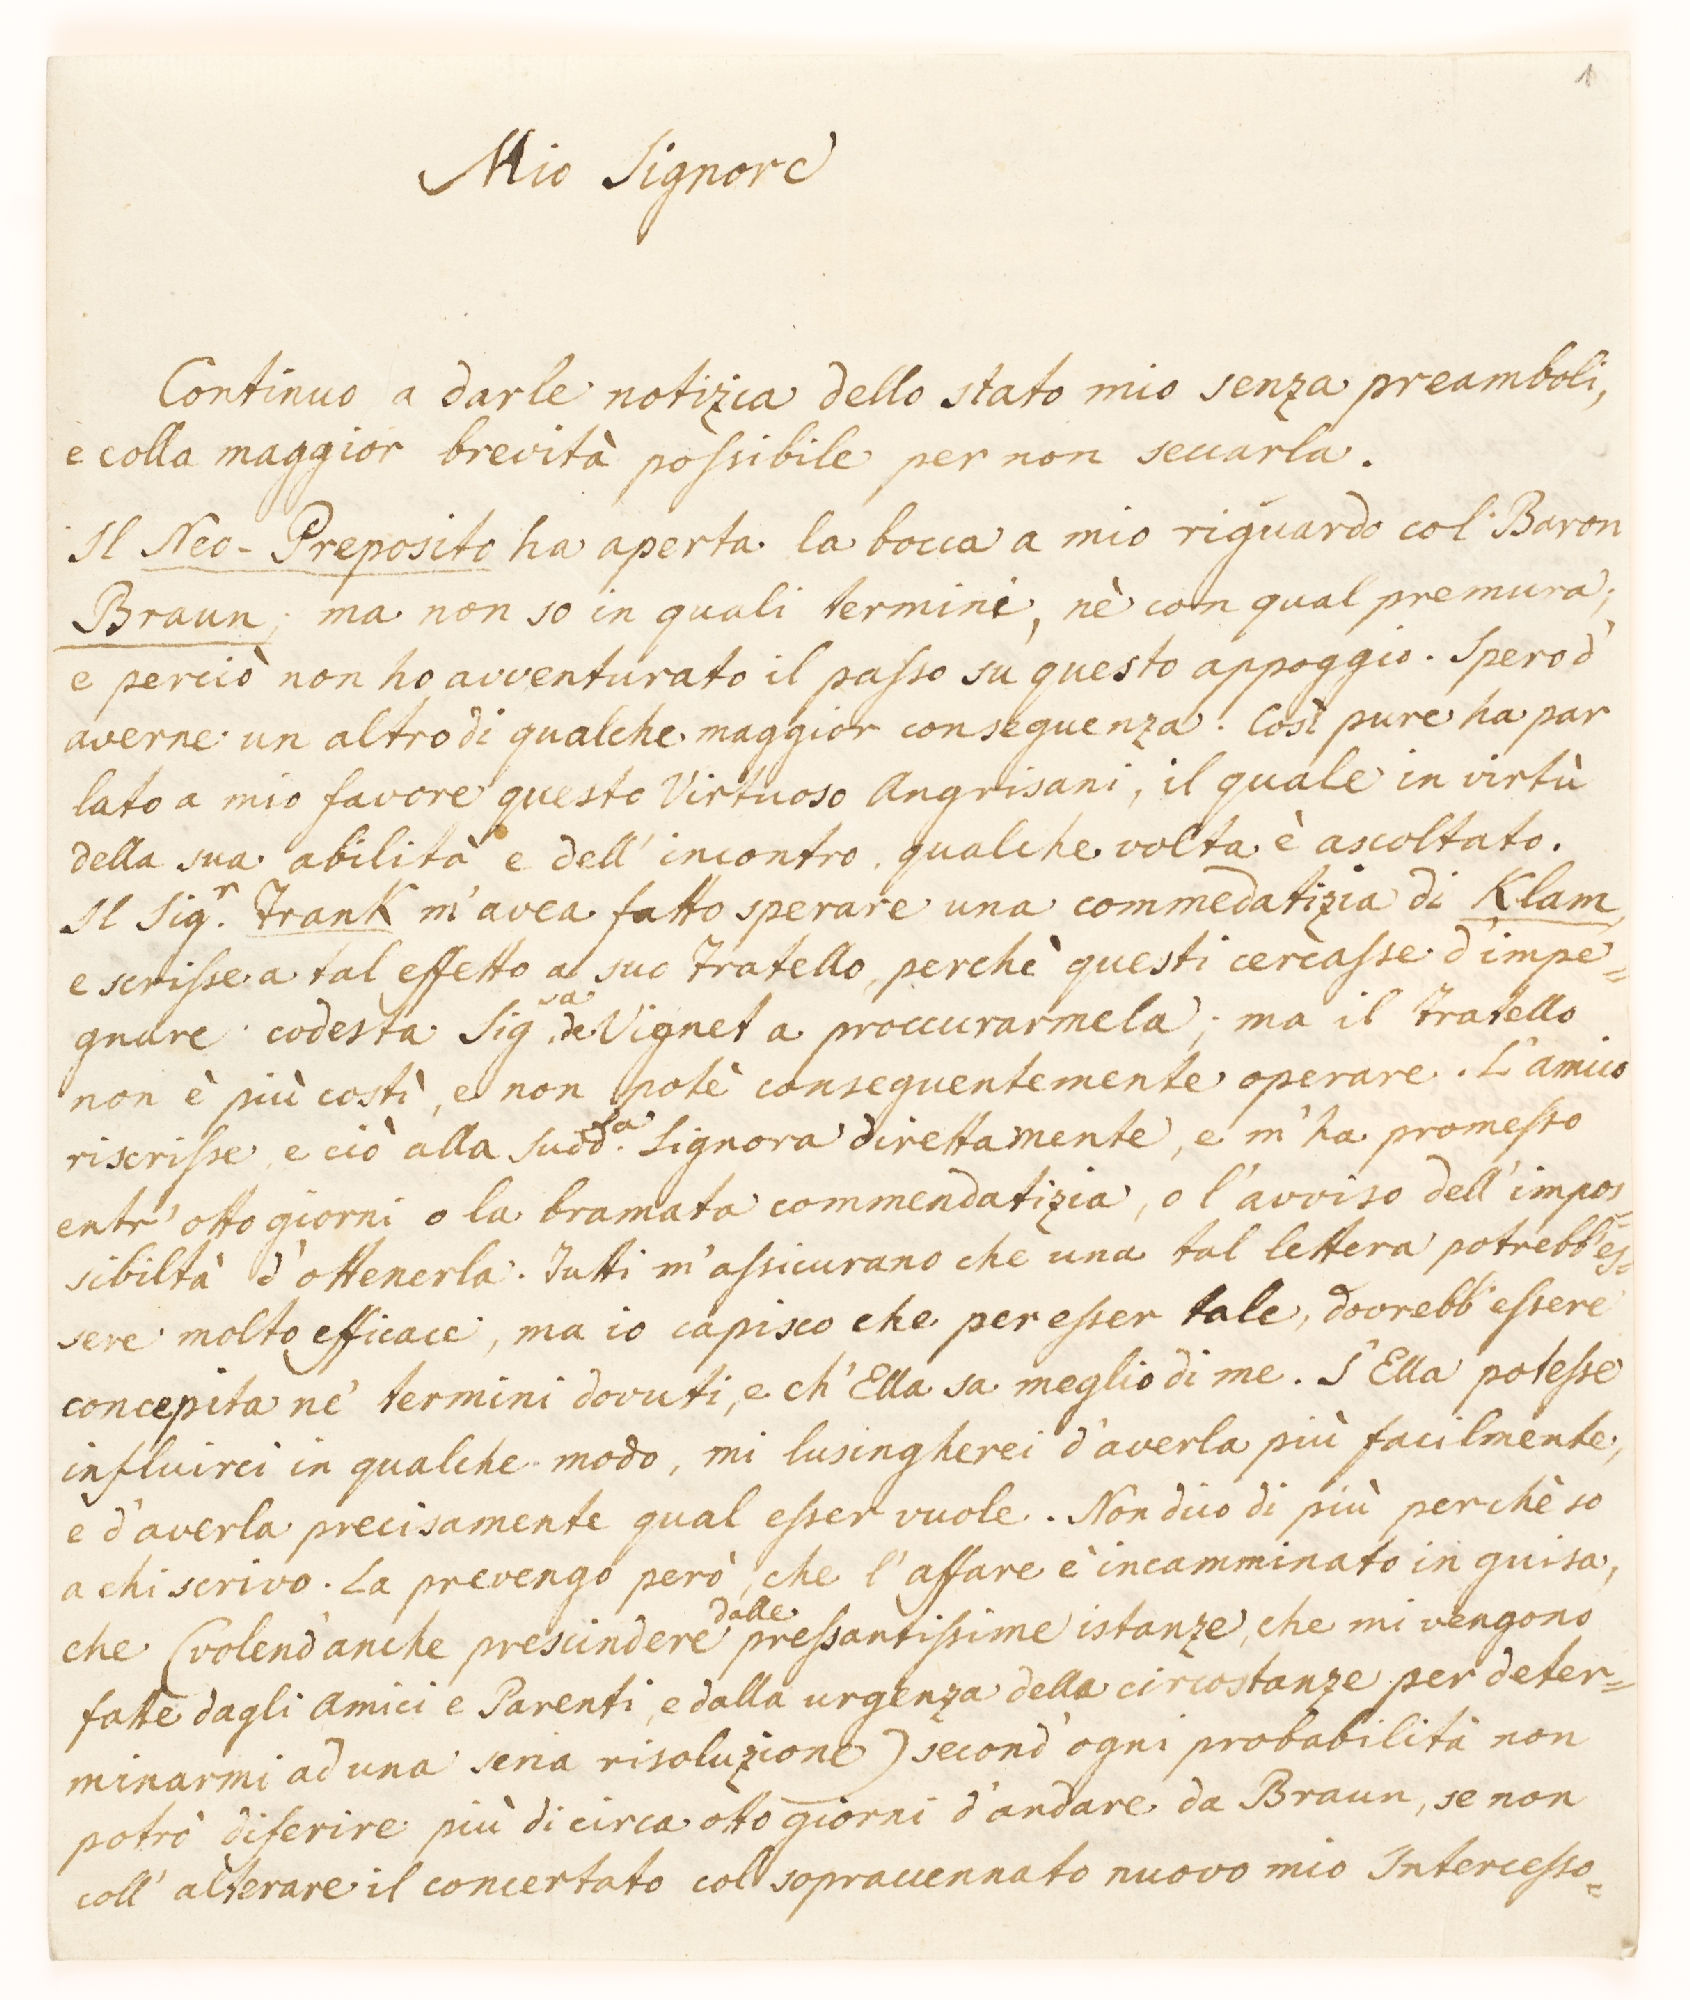 1
Mio Signore
Continuo a darle notizia dello stato mio senza preamboli,
e colla maggior brevità possibile per non seccarla.
Il Neo-Preposito ha aperta la bocca a mio riguardo col Baron
Braun; ma non so in quali termini, nè con qual premura;
e perciò non ho avventurato il passo su questo appoggio. Spero d'
averne un altro di qualche maggior conseguenza. Così pure ha par
lato a mio favore questo Virtuoso Angrisani, il quale in virtù
della sua abilità e dell'incontro, qualche volta è ascoltato.
Il Sig.r Frank m'avea fatto sperare una commedatizia di Klam,
e scrisse a tal effetto al suo Fratello, perchè questi cercasse d'impe=
gnare codesta Sig.ra de Vignet a proccurarmela; ma il Fratello
non è più costì, e non potè conseguentemente operare. L'amico
riscrisse, e ciò alla sudd.ta Signora direttamente, e m'ha promesso
entr'otto giorni o la bramata commendatizia, o l'avviso dell'impos=
sibiltà d'ottenerla. Tutti m'assicurano che una tal lettera potrebb'es=
sere molto efficace, ma io capisco che per esser tale, dovrebb'essere
concepita ne' termini dovuti, e ch'Ella sa meglio di me. S'Ella potesse
influirci in qualche modo, mi lusingherei d'averla più facilmente,
e d'averla precisamente qual esser vuole. Non dico di più perchè so
a chi scrivo. La prevengo però, che l'affare è incamminato in guisa,
che (volend'anche prescindere dalle pressantissime istanze, che mi vengono
fatte dagli Amici e Parenti, e dalla urgenza della circostanze per deter=
minarmi ad una seria risoluzione) second'ogni probabilità non
potrò diferire più di circa otto giorni d'andare da Braun, se non
coll'alterare il concertato col sopraccennato nuovo mio Intercesso=